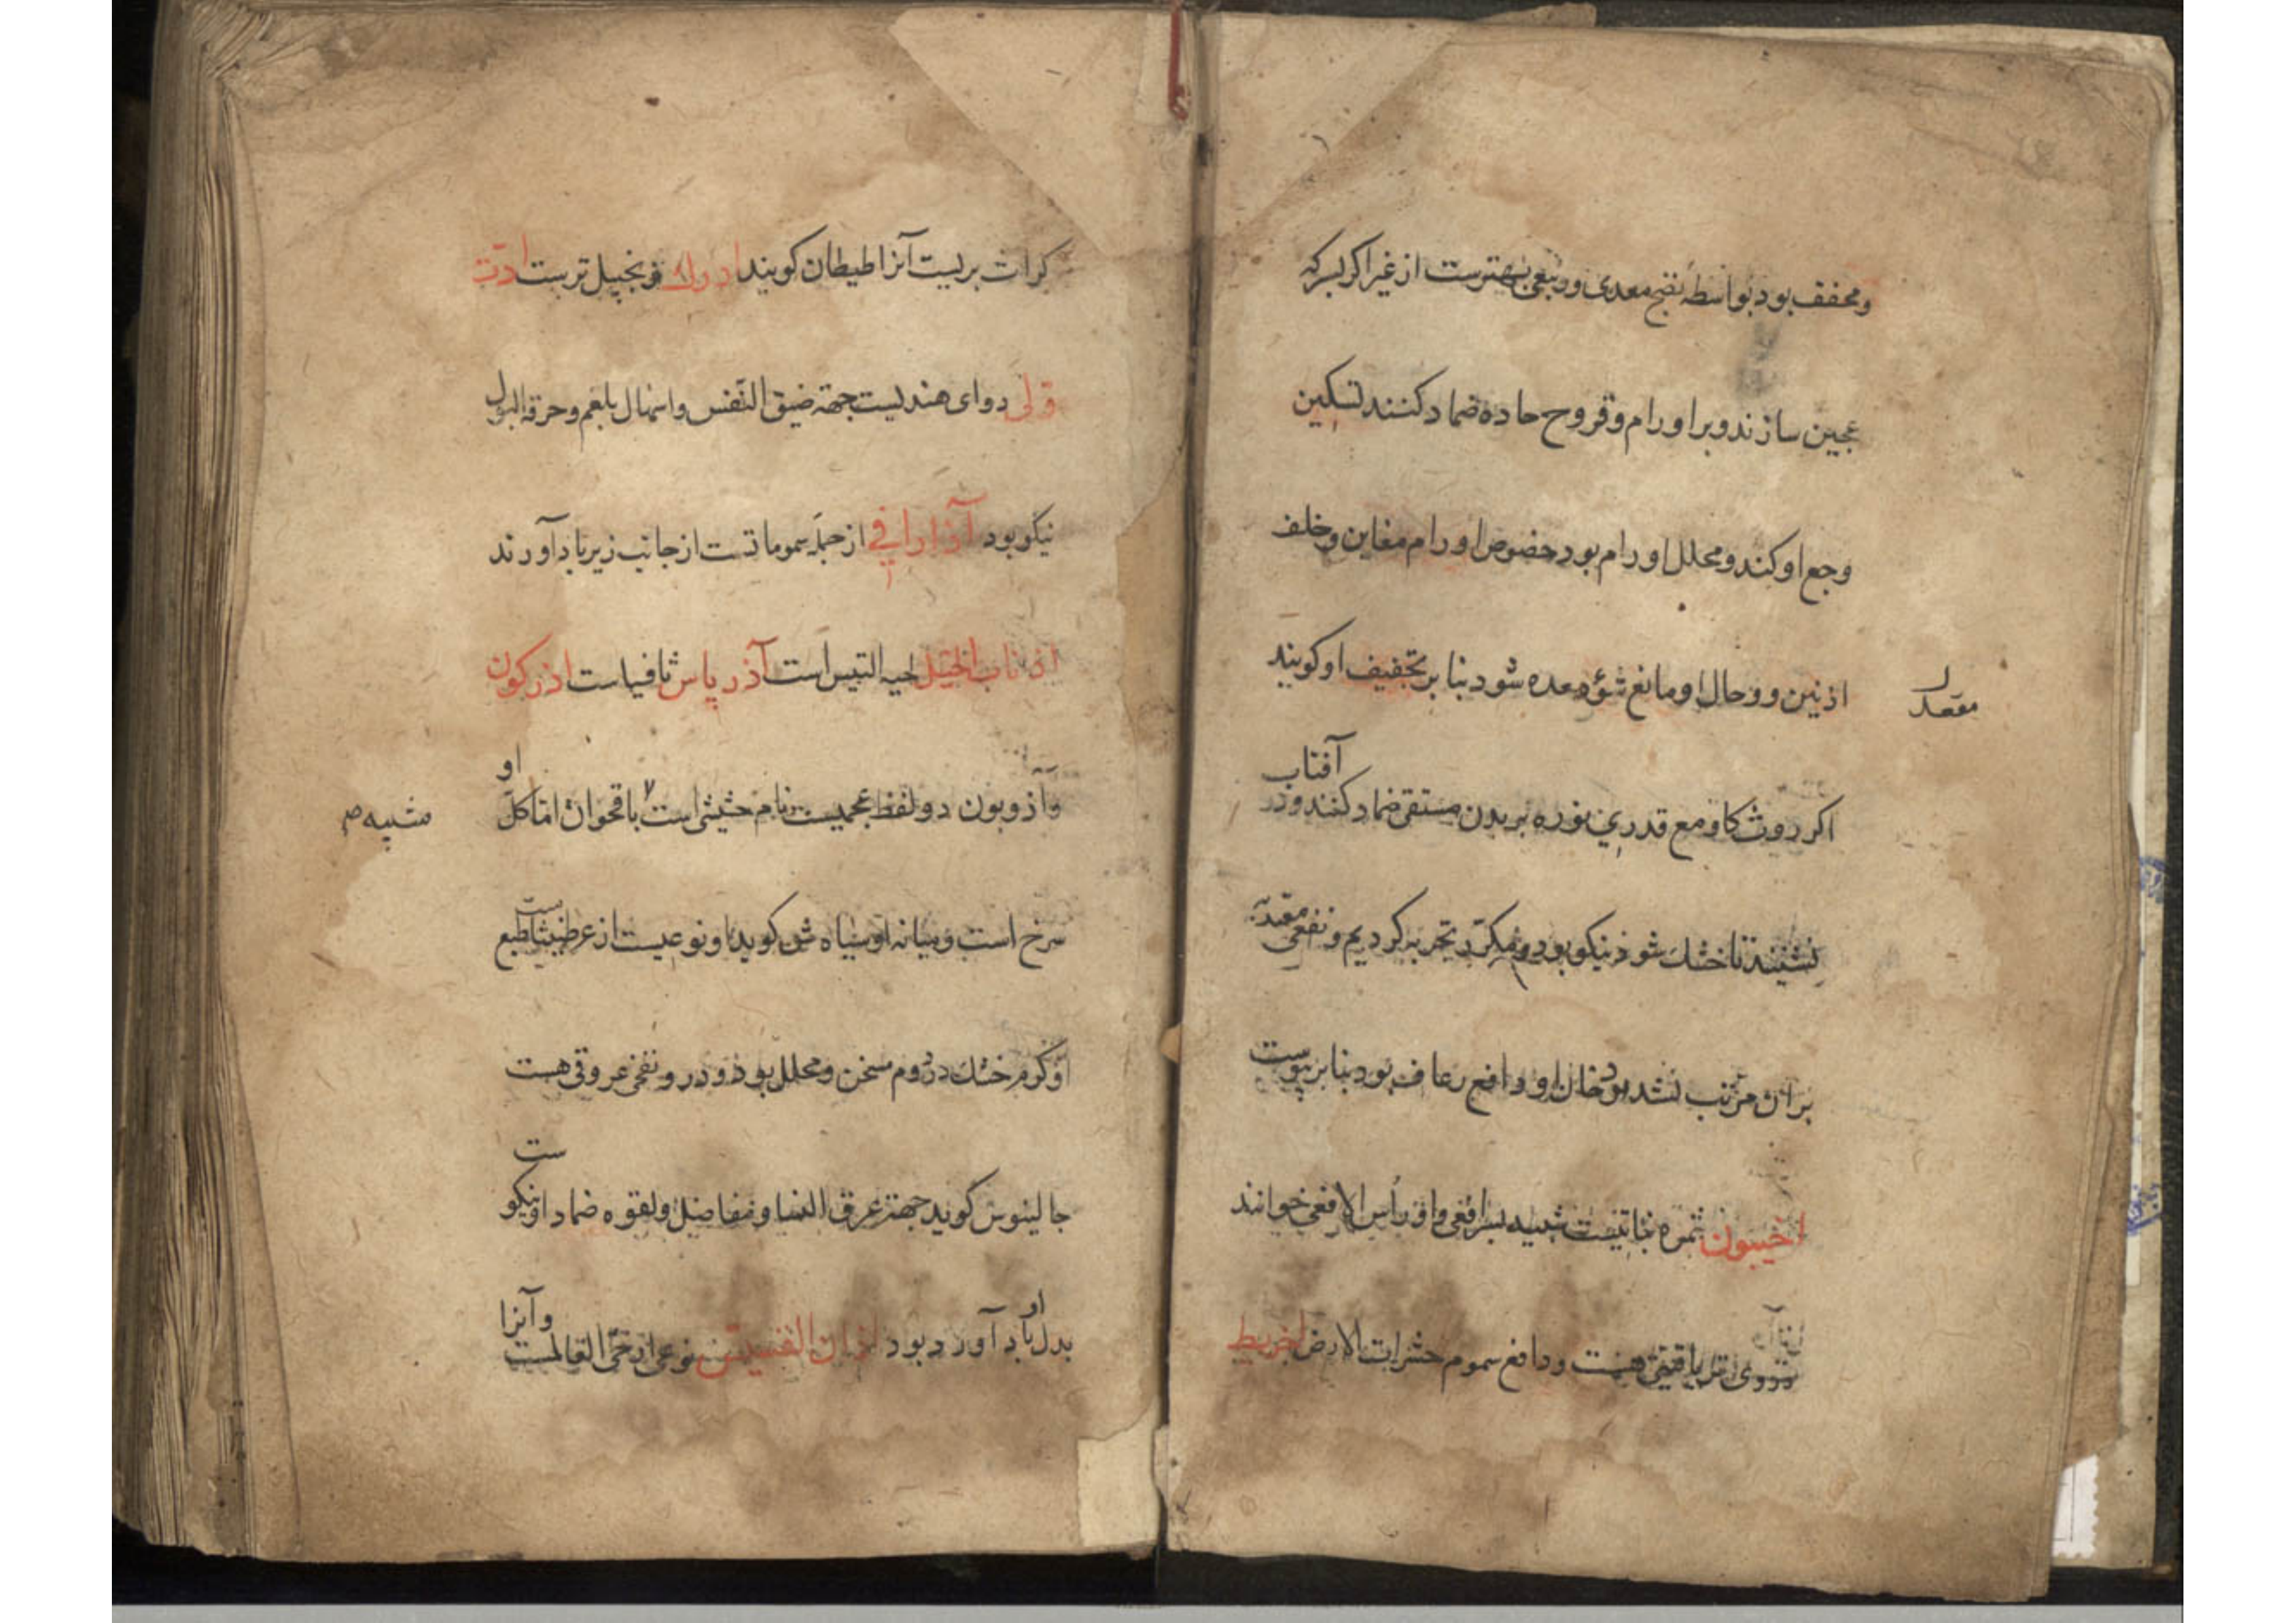 ومجفف بود بواسطه نضج معدی و ربیعی بهترست از غیر اکر بسرکه
عجین سازند و بر اورام و قروح حاده ضماد کنند تسکین
وجع او کند و محلل اورام بود خصوص اورام مغابن و خلف
اذنین و وحال او مانع شؤه معده شود بنا بر تجفیف او کویند
معقد
اکر روث کاو مع قدری نوره بر بدن مستقی ضماد کنند و در آفتاب
نشیند تا خشك شود نیکو بود و مکرر تجربه کردیم و نفعی
بر ان مرتب نشد بود خان او دافع رعاف بود بنا بر یبوست
اخیبون ثمره نباتیست شبیه بسر افعی و او رأس الافعی خوانند
هست و دافع سموم حشرات الارض اخریط
کراث بریست آنرا طیطان کویند ادرك زنجبیل ترست ادت
قلی دوای هندیست جهة ضیق النفس و اسهال بلغم و حرقة البول
نیکو بود آذاراقی از جمله سموماتست از جانب زیرباد آورند
اذناب الخیل لحیه التیس است آذر یاس ثافیاست اذرکون
وآذربون دو لفظ عجمیست نام حشیشی است باقحوان اما کل او
شبیه ص
سرخ است و میانه او سیاه ش کوید او نوعیست از عرطنیثا طبع
او کرم خشك در دوم مسخن و محلل بود و در و نفخی عروقی هست
جالینوس کوید جهة عرق النسا و مفاصل و لقوه ضماد او نیکوست
بدل او باد آورد بود اذان القسیس نوعی از حی العالمست و آنرا